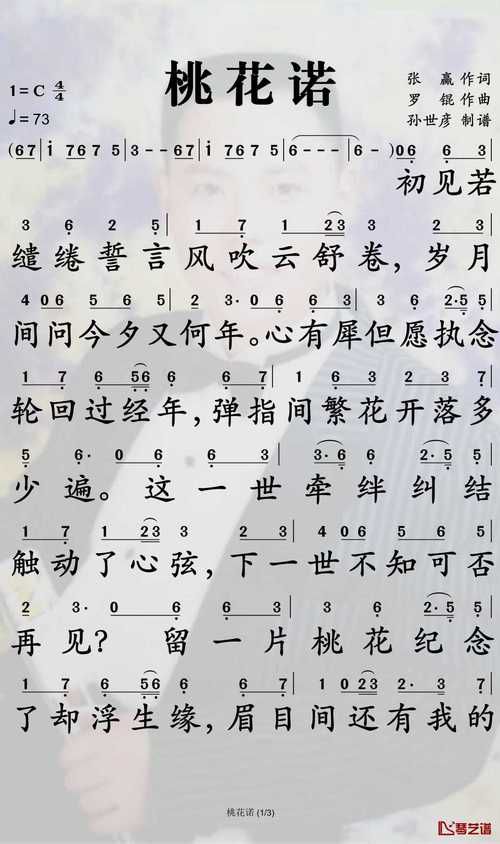 桃花诺
1=C 4/4
♩=73
张 赢 作词
罗 锟 作曲
孙世彦 制谱
(67 | i 767 5 | 3--67 | i 767 5 | 6--- | 6--) 06 6 3 |
初见若
3 6 2 5 | 1 7 1 23 3 - 2 3 |
缱绻誓言风吹云舒卷，岁月
4 06 5 6 5 | 2 3· 0 6 6 | 3 6 2·5 5 |
间问今夕又何年。心有犀但愿执念
1 7 6 56 6 6 7 | 1 6 3 2 3 7 |
轮回过经年，弹指间繁花开落多
5 6· 0 2 3 | 3·6 6 2·5 5 |
少遍。这一世牵绊纠结
1 7 1 23 3 2 3 | 4 06 5 6 5 |
触动了心弦，下一世不知可否
2 3· 0 6 6 | 3 6 2·5 5 |
再见？留一片桃花纪念
1 7 6 56 6 6 7 | 1 0 23 2·3 7 |
了却浮生缘，眉目间还有我的
桃花诺 (1/3)
琴艺谱